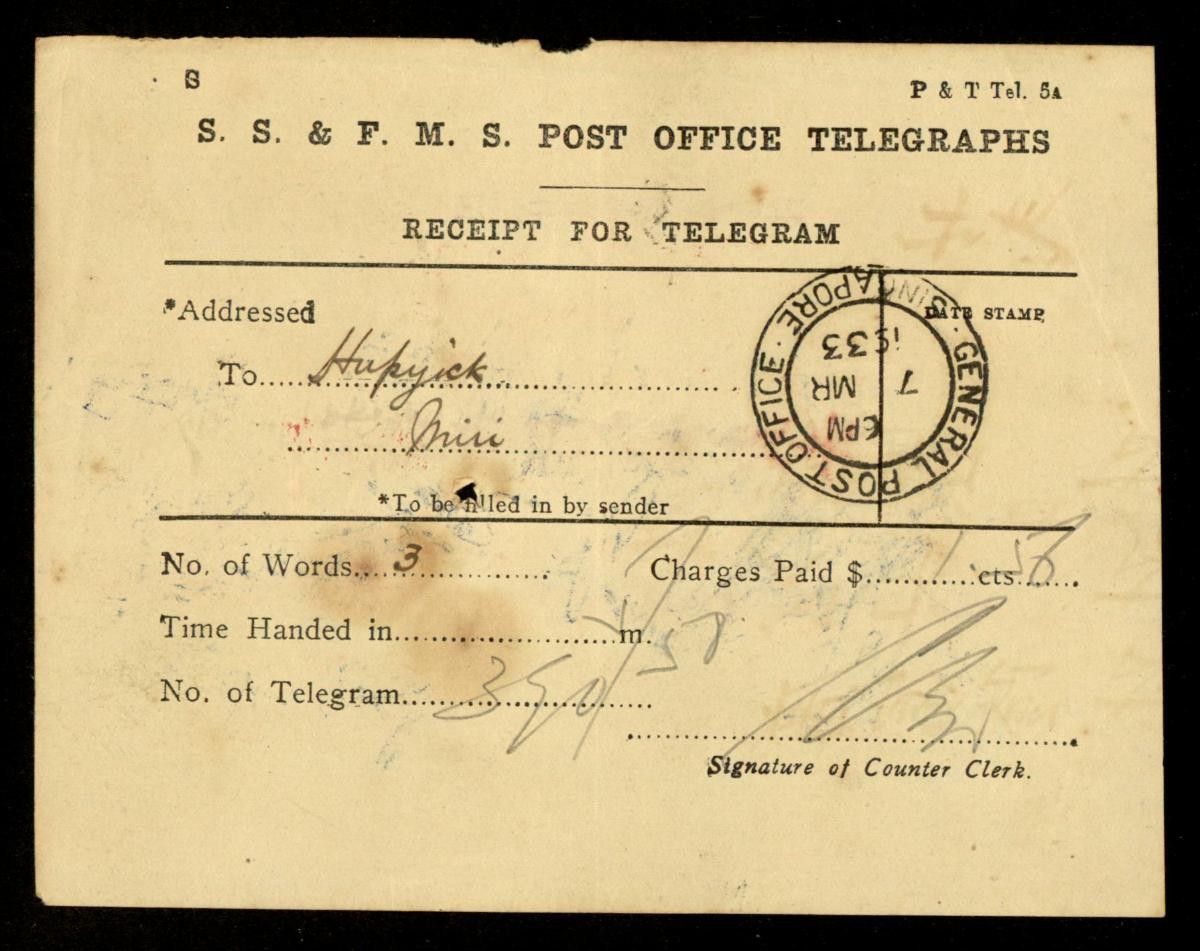 S
P & T Tel. 5A
S. S. & F. M. S. POST OFFICE TELEGRAPHS
RECEIPT FOR TELEGRAM
*Addressed
DATE STAMP
To Hupyick
Miri
GENERAL POST OFFICE · SINGAPORE ·
6PM
7 MR
1933
*To be filled in by sender
No. of Words 3
Charges Paid $ 1 cts 58
Time Handed in m.
58
No. of Telegram 390
Signature of Counter Clerk.